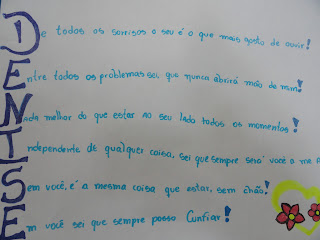 De todos os sorrisos o seu é o que mais gosto de ouvir!
Entre todos os problemas sei que nunca abrirá mão de mim!
Nada melhor do que estar ao seu lado todos os momentos!
Independente de qualquer coisa, sei que sempre será você o me
Sem você, é a mesma coisa que estar, sem chão!
Em você sei que sempre posso Confiar!